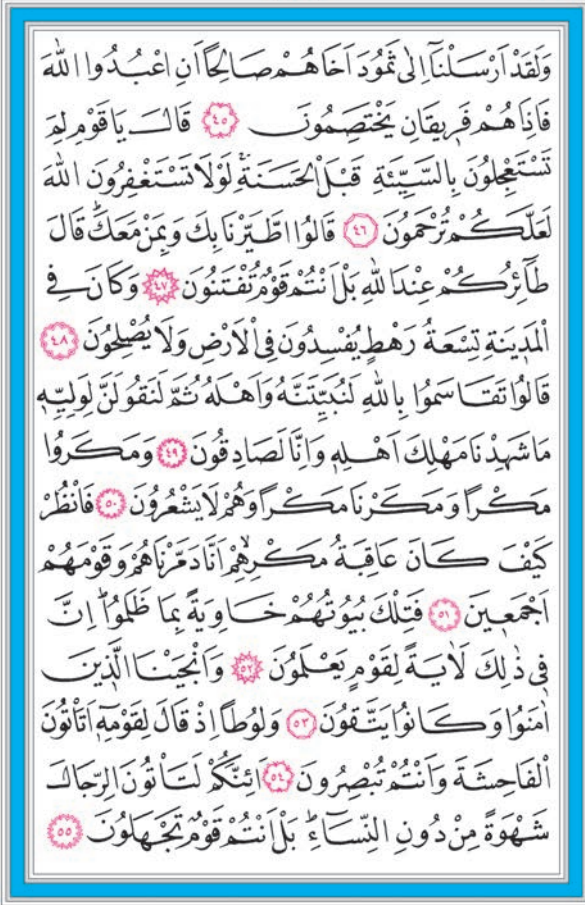 وَلَقَدْ اَرْسَلْنَٓا اِلٰى ثَمُودَ اَخَاهُمْ صَالِحًا اَنِ اعْبُدُوا اللّٰهَ
فَاِذَا هُمْ فَرٖيقَانِ يَخْتَصِمُونَ ﴿٤٥﴾ قَالَ يَا قَوْمِ لِمَ
تَسْتَعْجِلُونَ بِالسَّيِّئَةِ قَبْلَ الْحَسَنَةِۚ لَوْلَا تَسْتَغْفِرُونَ اللّٰهَ
لَعَلَّكُمْ تُرْحَمُونَ ﴿٤٦﴾ قَالُوا اطَّيَّرْنَا بِكَ وَبِمَنْ مَعَكَۜ قَالَ
طَٓائِرُكُمْ عِنْدَ اللّٰهِ بَلْ اَنْتُمْ قَوْمٌ تُفْتَنُونَ ﴿٤٧﴾ وَكَانَ فِي
الْمَدٖينَةِ تِسْعَةُ رَهْطٍ يُفْسِدُونَ فِي الْاَرْضِ وَلَا يُصْلِحُونَ ﴿٤٨﴾
قَالُوا تَقَاسَمُوا بِاللّٰهِ لَنُبَيِّتَنَّهُ وَاَهْلَهُ ثُمَّ لَنَقُولَنَّ لِوَلِيِّهٖ
مَا شَهِدْنَا مَهْلِكَ اَهْلِهٖ وَاِنَّا لَصَادِقُونَ ﴿٤٩﴾ وَمَكَرُوا
مَكْرًا وَمَكَرْنَا مَكْرًا وَهُمْ لَا يَشْعُرُونَ ﴿٥٠﴾ فَانْظُرْ
كَيْفَ كَانَ عَاقِبَةُ مَكْرِهِمْۙ اَنَّا دَمَّرْنَاهُمْ وَقَوْمَهُمْ
اَجْمَعٖينَ ﴿٥١﴾ فَتِلْكَ بُيُوتُهُمْ خَاوِيَةً بِمَا ظَلَمُواۜ اِنَّ
فٖي ذٰلِكَ لَاٰيَةً لِقَوْمٍ يَعْلَمُونَ ﴿٥٢﴾ وَاَنْجَيْنَا الَّذٖينَ
اٰمَنُوا وَكَانُوا يَتَّقُونَ ﴿٥٣﴾ وَلُوطًا اِذْ قَالَ لِقَوْمِهٖٓ اَتَأْتُونَ
الْفَاحِشَةَ وَاَنْتُمْ تُبْصِرُونَ ﴿٥٤﴾ اَئِنَّكُمْ لَتَأْتُونَ الرِّجَالَ
شَهْوَةً مِنْ دُونِ النِّسَٓاءِۜ بَلْ اَنْتُمْ قَوْمٌ تَجْهَلُونَ ﴿٥٥﴾